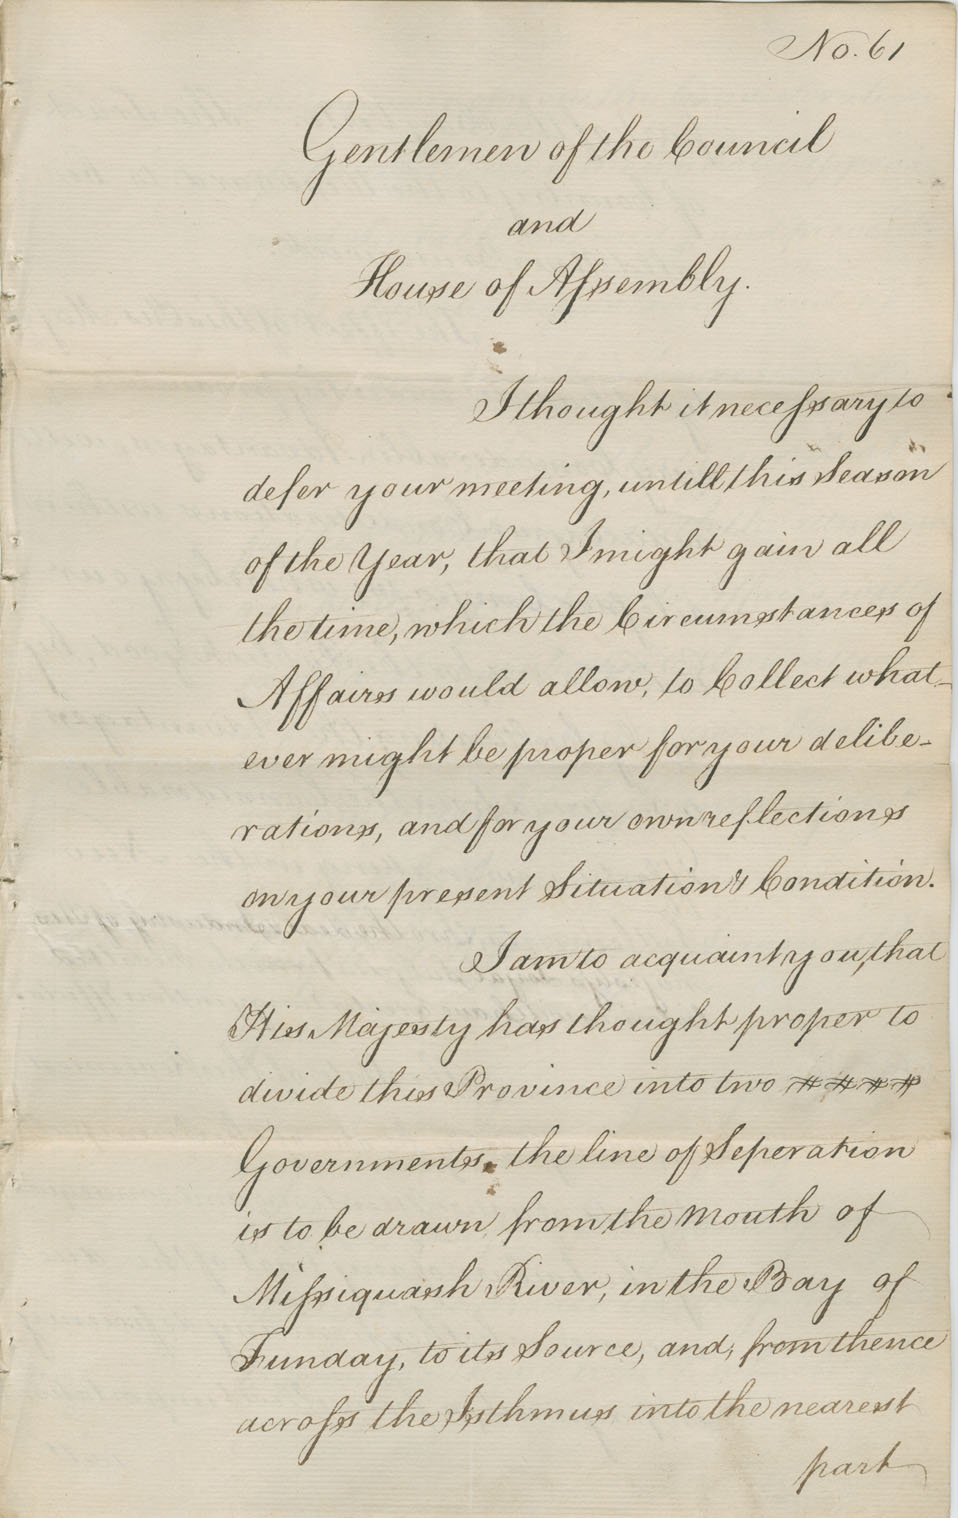 No. 61
Gentlemen of the Council
and
House of Assembly.
I thought it necessary to
defer your meeting, untill this Season
of the Year, that I might gain all
the time, which the Circumstances of
Affairs would allow, to Collect what-
ever might be proper for your delibe-
rations, and for your own reflections
on your present Situation & Condition.
I am to acquaint you, that
His Majesty has thought proper to
divide this Province into two # # # #
Governments, the line of Seperation
is to be drawn from the Mouth of
Missiquash River, in the Bay of
Funday, to its Source, and, from thence
across the Isthmus into the nearest
part